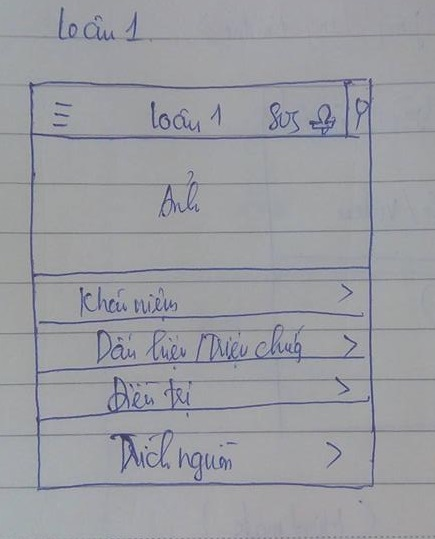 loạn 1
loạn 1 SOS
Ảnh
Khái niệm >
Dấu hiệu / Triệu chứng >
Điều trị >
Trích nguồn >